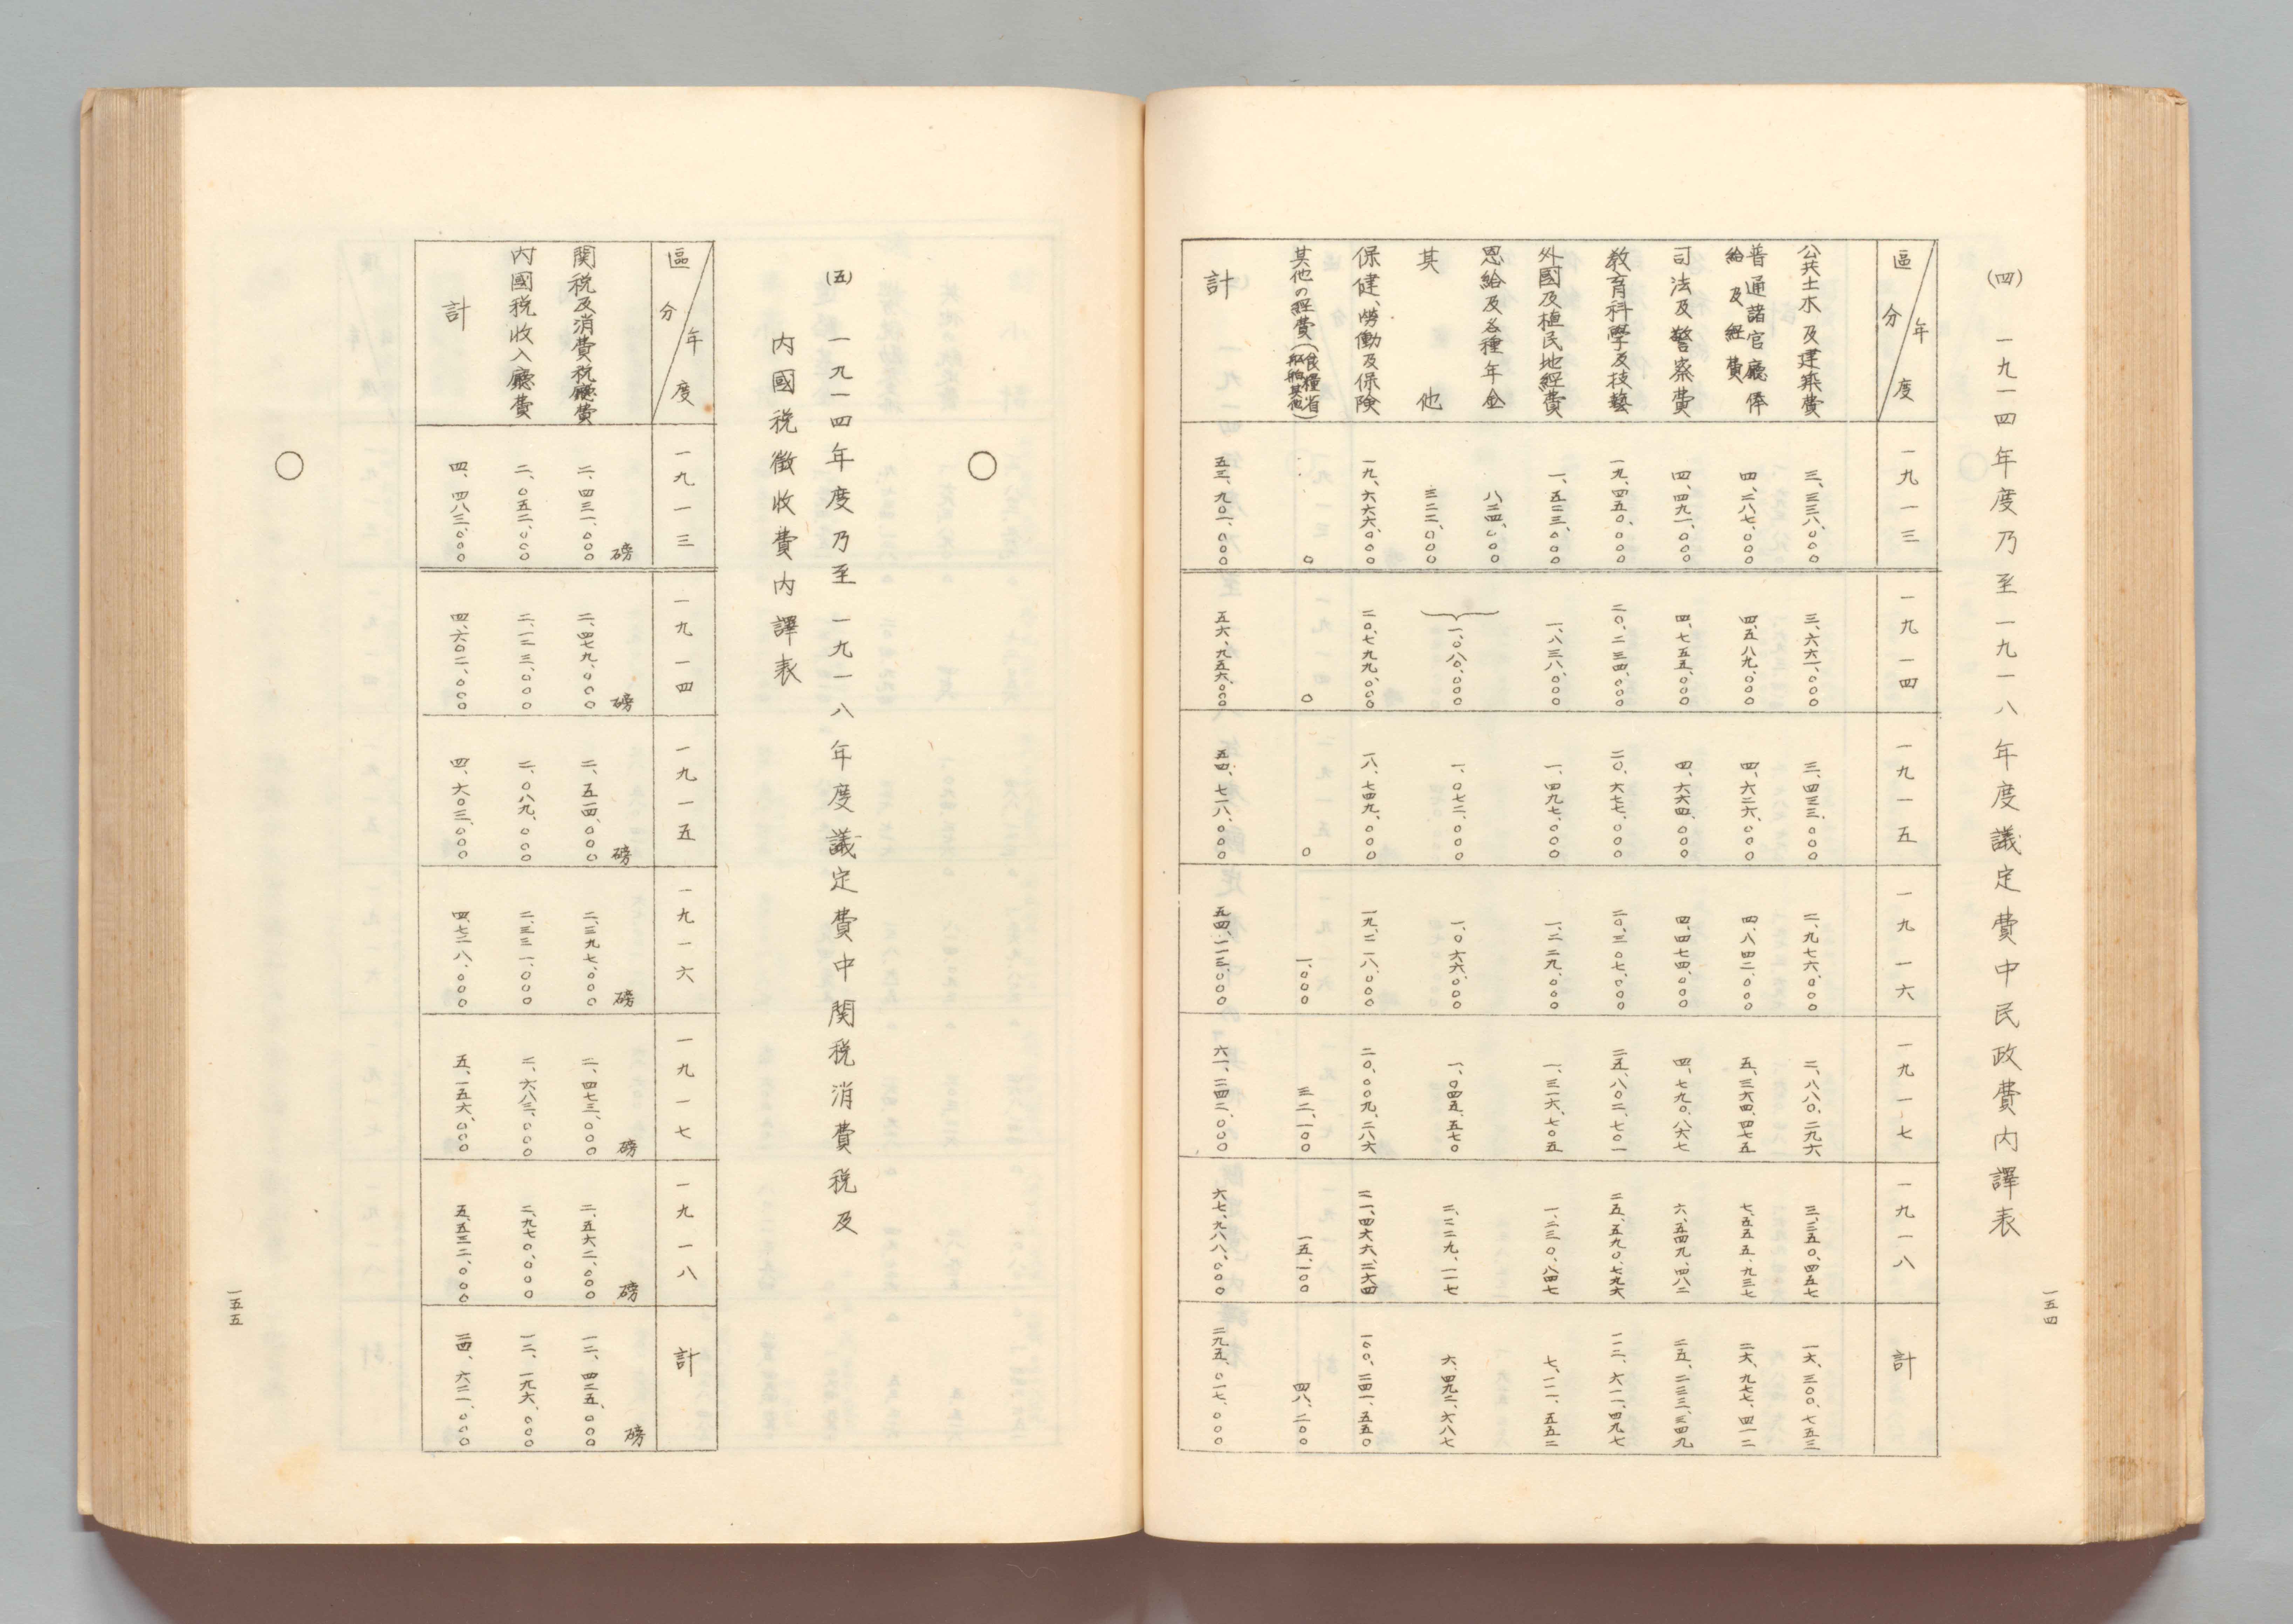 一五四
(四) 一九一四年度乃至一九一八年度議定費中民政費內譯表
區分 年度 一九一三 一九一四 一九一五 一九一六 一九一七 一九一八 計
公共土木及建築費 三、三三八、〇〇〇 三、六六一、〇〇〇 三、四三三、〇〇〇 二、九七六、〇〇〇 二、八八〇、二九六 三、三五〇、四五七 一六、三〇〇、七五三
普通諸官廳俸
給及経費 四、二八七、〇〇〇 四、五八九、〇〇〇 四、六二六、〇〇〇 四、八四二、〇〇〇 五、三六四、四七五 七、五五五、九三七 二六、九七七、四一二
司法及警察費 四、四九一、〇〇〇 四、七五五、〇〇〇 四、六六四、〇〇〇 四、四七四、〇〇〇 四、七九〇、八六七 六、五四九、四八二 二五、二三三、三四九
教育科學及技藝 一九、四五〇、〇〇〇 二〇、二三四、〇〇〇 二〇、六七七、〇〇〇 二〇、三〇七、〇〇〇 二五、八〇二、七〇一 二五、五九〇、七九六 一一二、六一一、四九七
外國及植民地経費 一、五二三、〇〇〇 一、八三八、〇〇〇 一、四九七、〇〇〇 一、二二九、〇〇〇 一、三一六、七〇五 一、二三〇、八四七 七、一一一、五五二
恩給及各種年金 八二四、〇〇〇
其他 三二二、〇〇〇 一、〇八〇、〇〇〇 一、〇七二、〇〇〇 一、〇六六、〇〇〇 一、〇四五、五七〇 二、二二九、一一七 六、四九二、六八七
保健、勞働及保険 一九、六六六、〇〇〇 二〇、七九九、〇〇〇 一八、七四九、〇〇〇 一九、二一八、〇〇〇 二〇、〇〇九、二八六 二一、四六六、二六四 一〇〇、二四一、五五〇
其他の経費(食糧省船舶其他) 〇 〇 〇 一、〇〇〇 三二、一〇〇 一五、一〇〇 四八、二〇〇
計 五三、九〇一、〇〇〇 五六、九五六、〇〇〇 五四、七一八、〇〇〇 五四、一一三、〇〇〇 六一、二四二、〇〇〇 六七、九八八、〇〇〇 二九五、〇一七、〇〇〇
(五) 一九一四年度乃至一九一八年度議定費中関税消費税及
内國税徴收費内譯表
區分 年度 一九一三 一九一四 一九一五 一九一六 一九一七 一九一八 計
磅 磅 磅 磅 磅 磅 磅
関税及消費税廳費 二、四三一、〇〇〇 二、四七九、〇〇〇 二、五一四、〇〇〇 二、三九七、〇〇〇 二、四七三、〇〇〇 二、五六二、〇〇〇 一二、四二五、〇〇〇
内國税收入廳費 二、〇五二、〇〇〇 二、一二三、〇〇〇 二、〇八九、〇〇〇 二、三三一、〇〇〇 二、六八三、〇〇〇 二、九七〇、〇〇〇 一二、一九六、〇〇〇
計 四、四八三、〇〇〇 四、六〇二、〇〇〇 四、六〇三、〇〇〇 四、七二八、〇〇〇 五、一五六、〇〇〇 五、五三二、〇〇〇 二四、六二一、〇〇〇
一五五